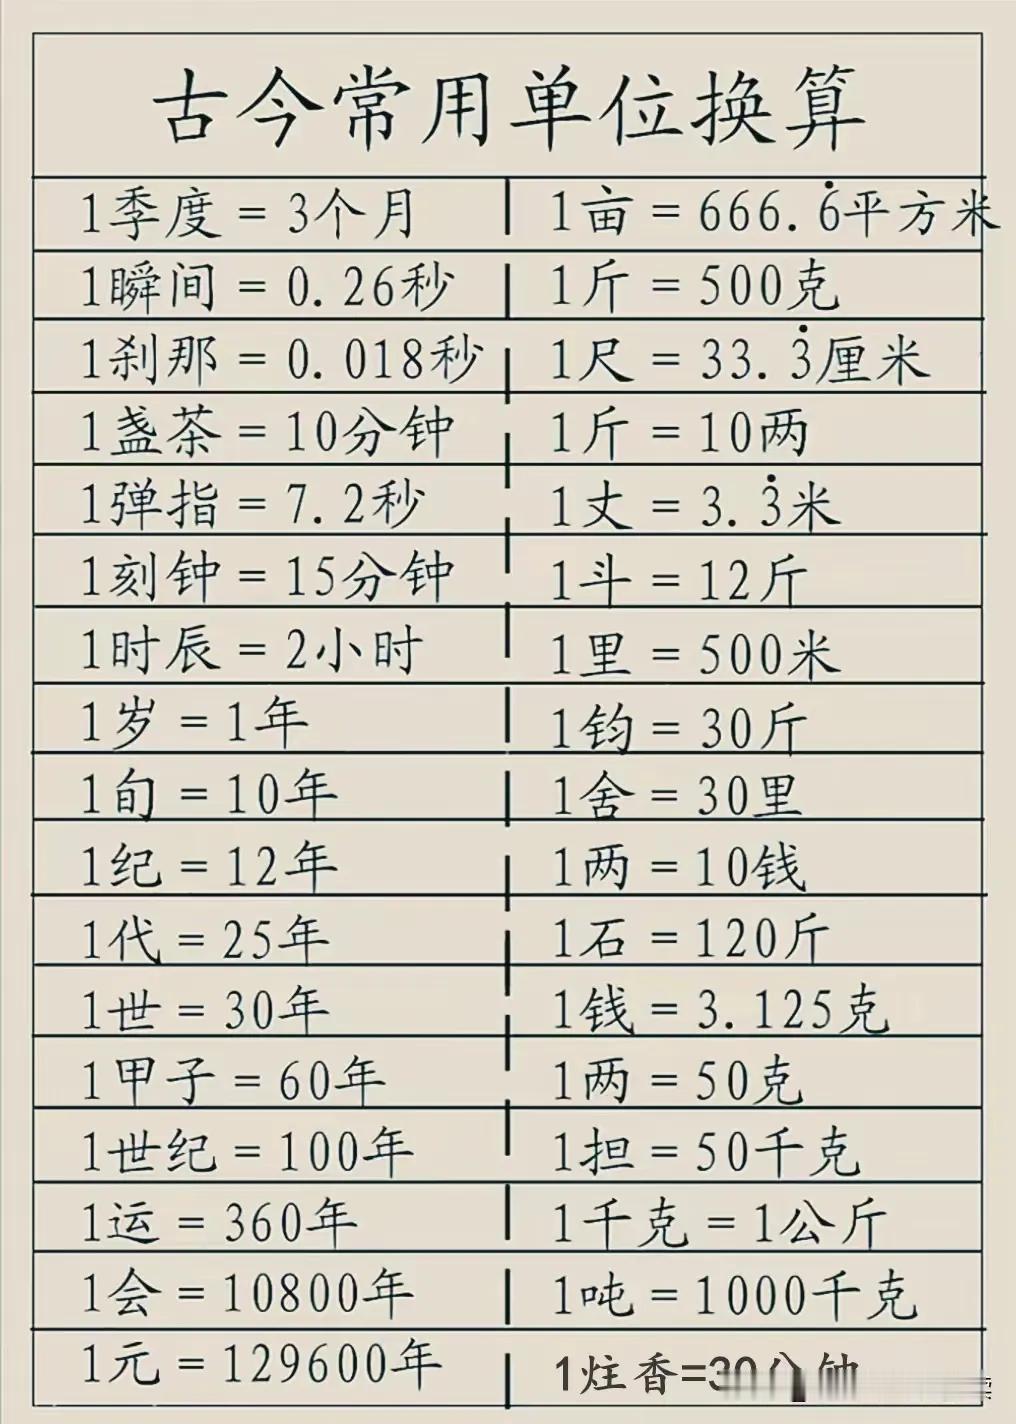 古今常用单位换算
1季度 = 3个月
1亩 = 666.6̇平方米
1瞬间 = 0.26秒
1斤 = 500克
1刹那 = 0.018秒
1尺 = 33.3̇厘米
1盏茶 = 10分钟
1斤 = 10两
1弹指 = 7.2秒
1丈 = 3.3̇米
1刻钟 = 15分钟
1斗 = 12斤
1时辰 = 2小时
1里 = 500米
1岁 = 1年
1钧 = 30斤
1旬 = 10年
1舍 = 30里
1纪 = 12年
1两 = 10钱
1代 = 25年
1石 = 120斤
1世 = 30年
1钱 = 3.125克
1甲子 = 60年
1两 = 50克
1世纪 = 100年
1担 = 50千克
1运 = 360年
1千克 = 1公斤
1会 = 10800年
1吨 = 1000千克
1元 = 129600年
1炷香=30分钟